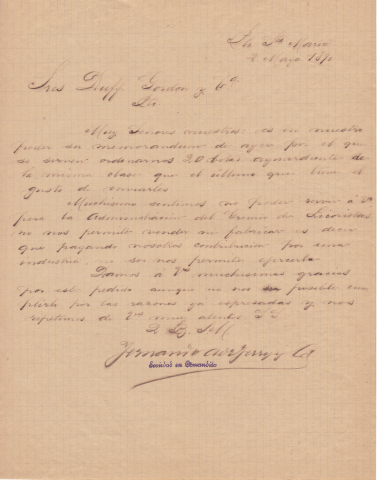 Pto Sta Maria
2 Mayo 1890
Sres Duff Gordon y Ca
Pto
Muy Señores nuestros: es en nuestro
poder su memorandum de ayer por el que
se sirven ordenarnos 20 botas aguardiente de
la misma clase que el último que tuve el
gusto de enviarles
Muchisimo sentimos no poder servir á V
pero la Administracion del Gremio de Licoristas
no nos permite vender ni fabricar es decir
que pagando nosotros contribucion por una
industria, no se nos permite ejercerla
Damos á Vs muchisimas gracias
por este pedido aunque no nos es posible cum
plirlo por las razones ya espresadas y nos
repetimos de Vs muy atentos SS
Q. B. S. M.
Fernando A. de Terry y Ca
Sociedad en Comandita